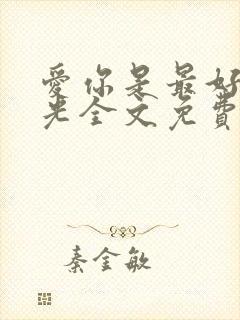 爱你是最好
光全文免費
秦金敏